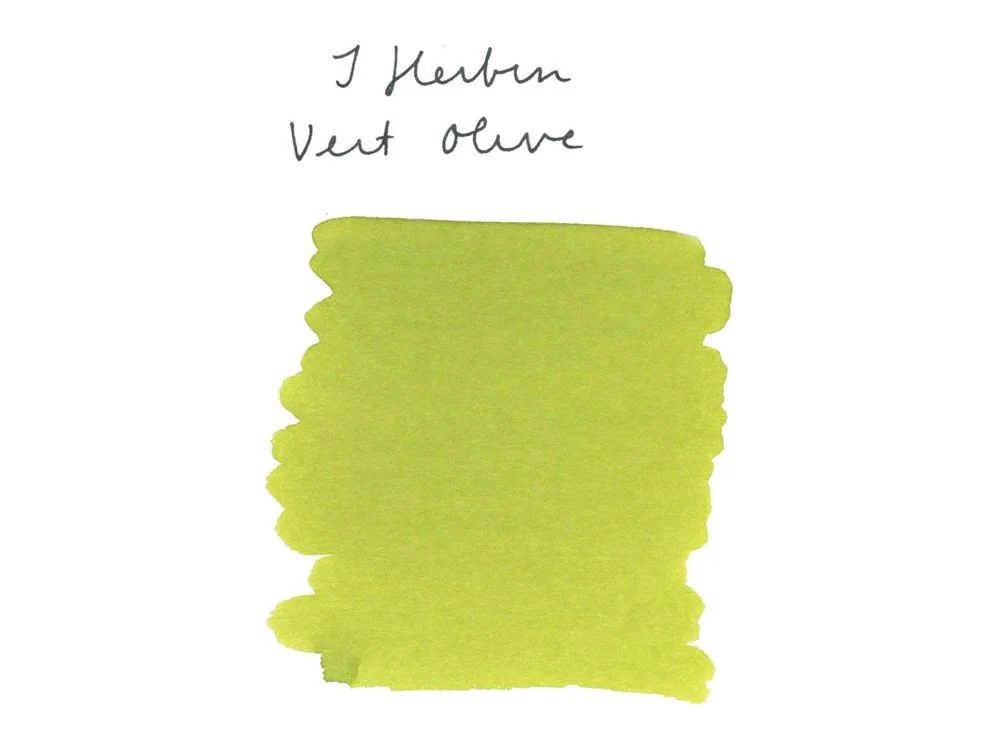 J Herbin
Vert Olive